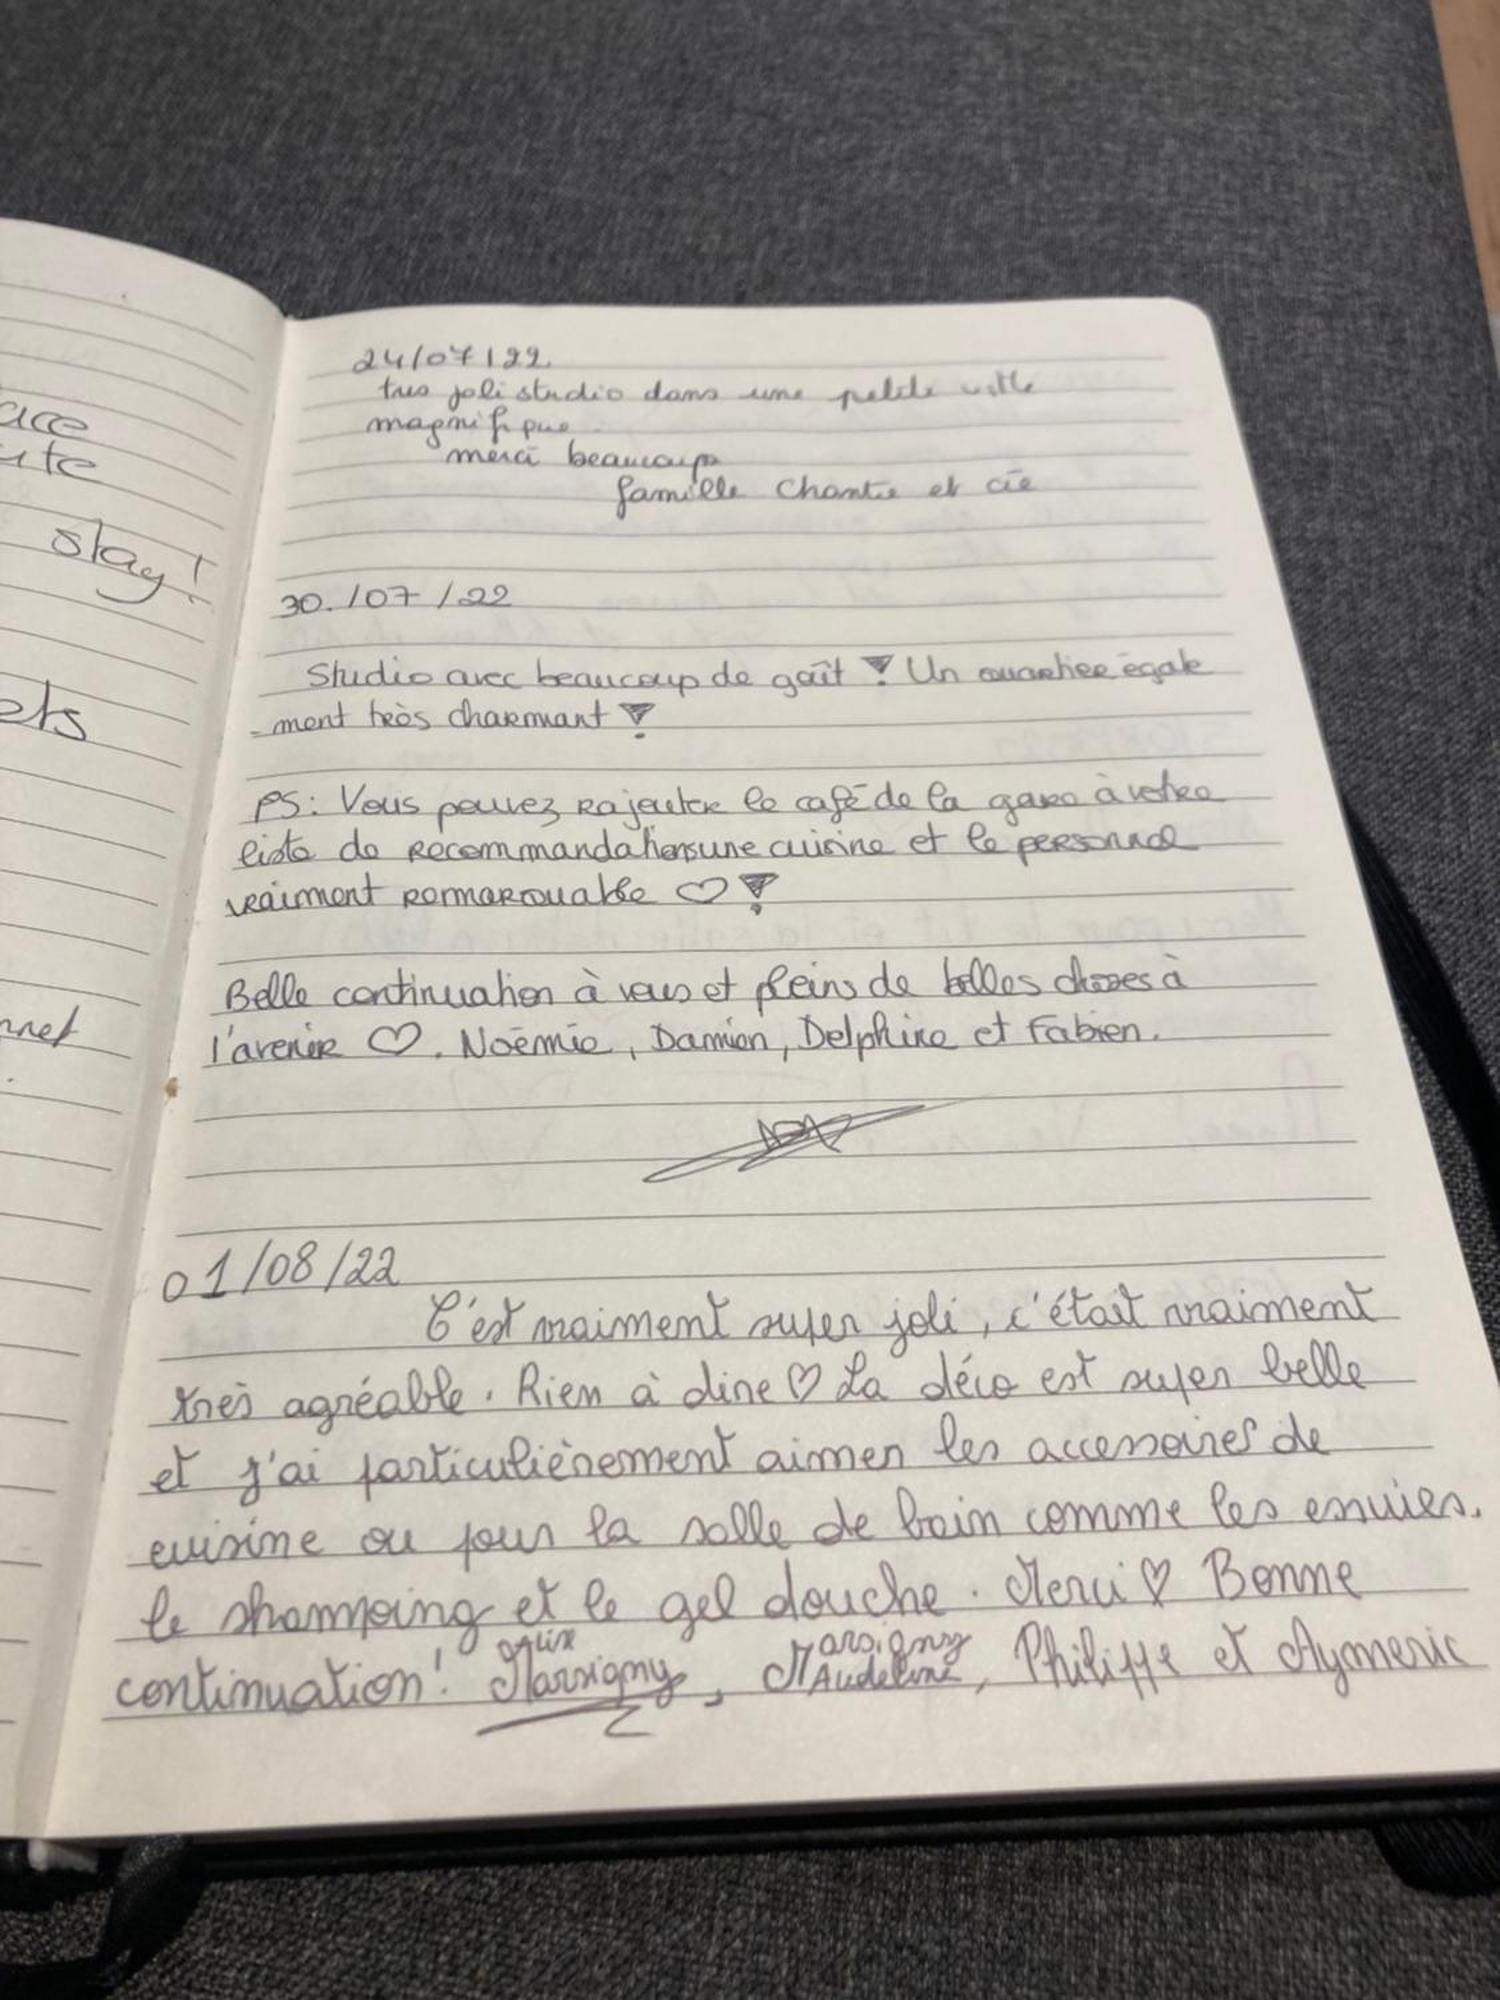 ace
ute
stay!
ets
nnet
24/07/22.
tres joli studio dans une petite ville
magnifique.
merci beaucoup
famille Chantie et cie
30./07/22
Studio avec beaucoup de gaît ! Un ouartier égale
-ment très charmant !
PS: Vous pouvez rajouter le café de la gare à votre
liste de recommandations une cuisine et le personnel
vraiment remarouable ♡ !
Belle continuation à vous et pleins de belles choses à
l'avenir ♡. Noémie, Damien, Delphine et Fabien.
01/08/22
C'est vraiment super joli, c'était vraiment
très agréable. Rien à dire ♡ La déco est super belle
et j'ai particulièrement aimer les accessoires de
cuisine ou pour la salle de bain comme les essuies,
le shampoing et le gel douche. Merci ♡ Bonne
continuation! Alix Marsigny, Marsigny Audeline, Philippe et Aymeric